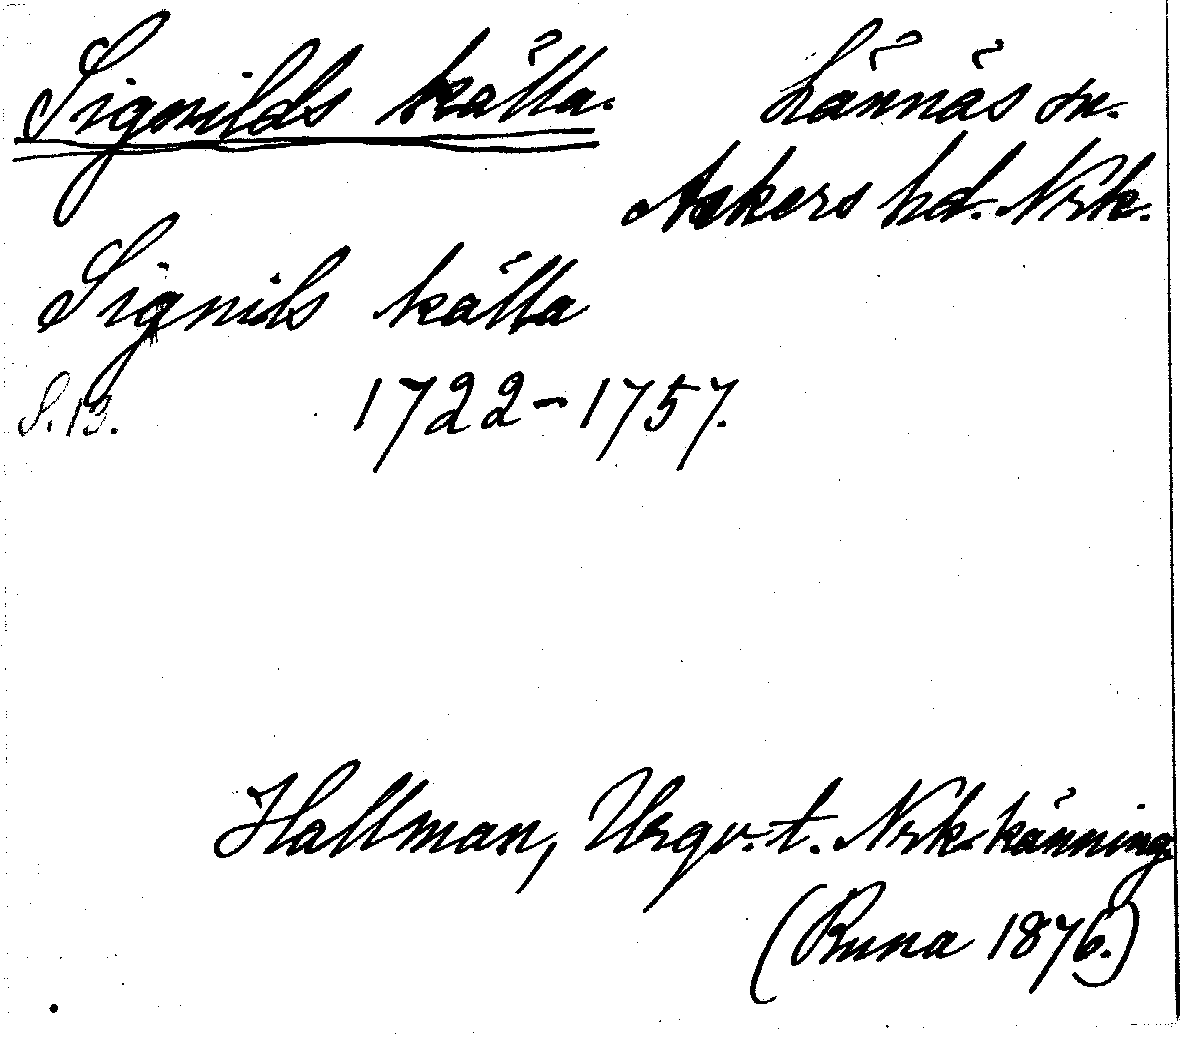 Signilds källa. Lännäs sn.
Askers hd. Nrk.
Signils källa
S. 13. 1722-1757.
Hallman, Urgv. t. Nrk. känning
(Runa 1876.)